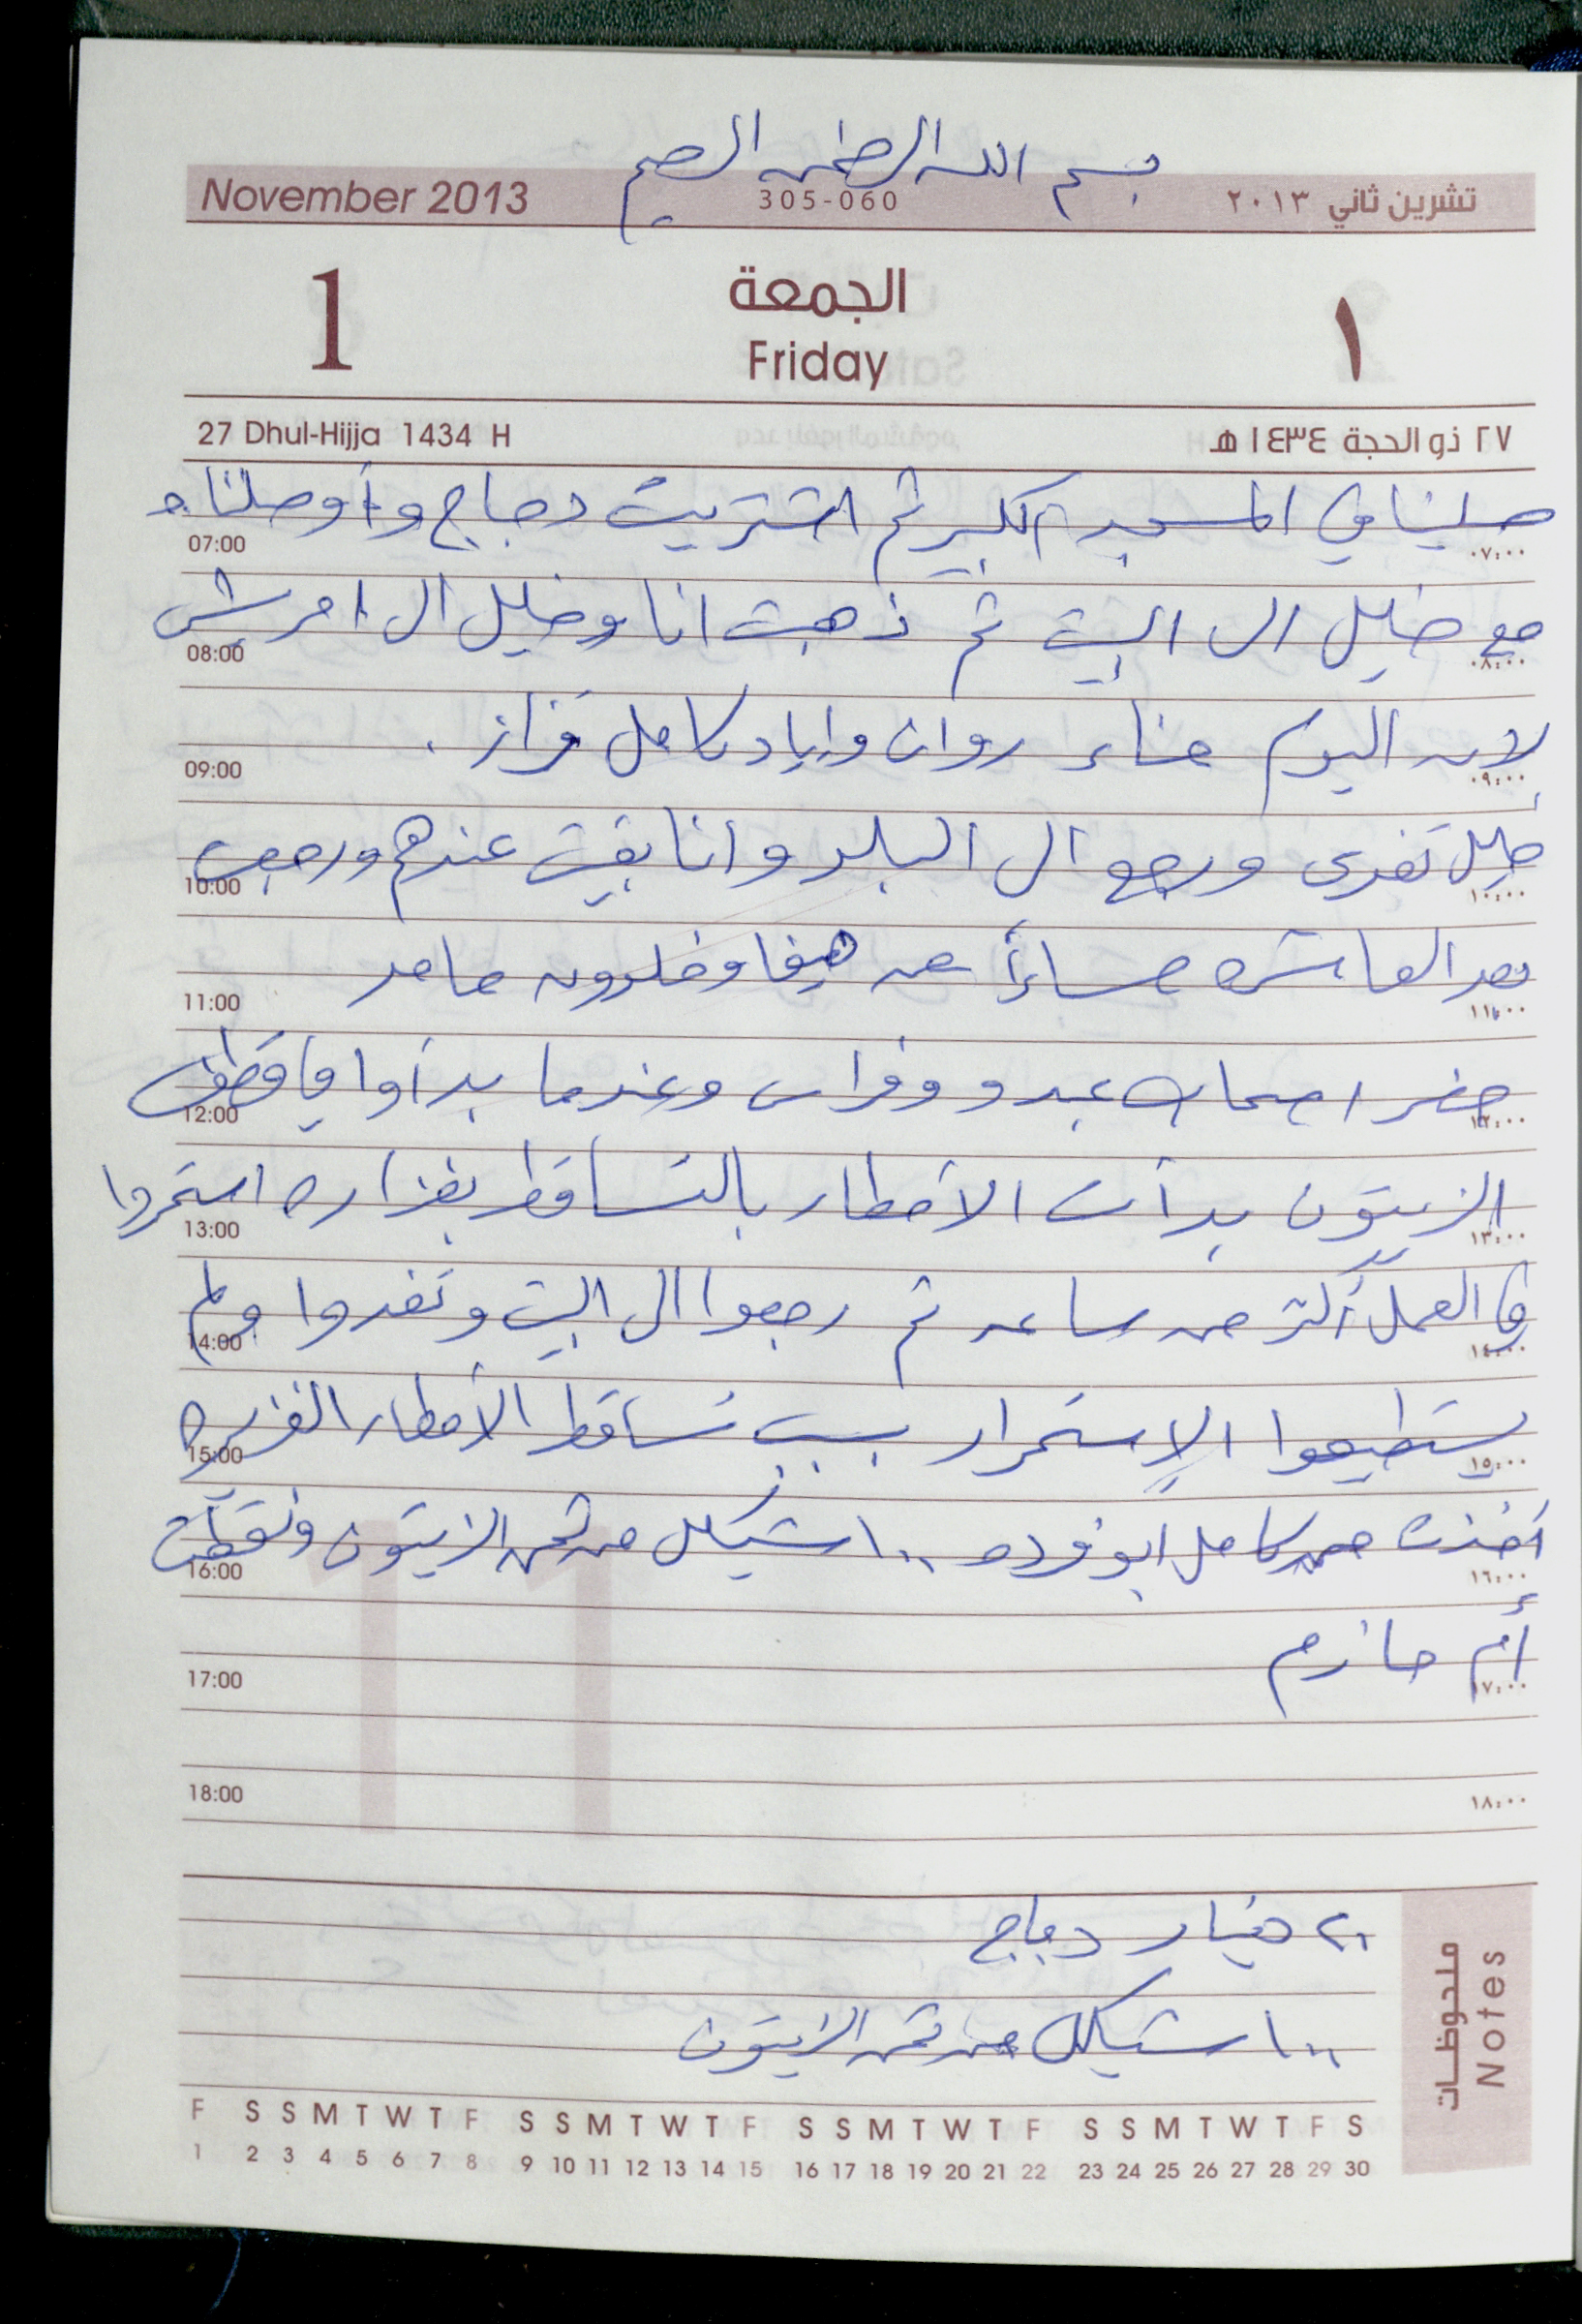 بسم الله الرحمن الرحيم
November 2013 305-060 تشرين ثاني ٢٠١٣
1 الجمعة ١
Friday
27 Dhul-Hijja 1434 H ٢٧ ذو الحجة ١٤٣٤ هـ
صلينا في المسجد الكبير ثم اشتريت دجاج وأوصلناه
07:00 ٠٧:٠٠
مع خليل الى البيت ثم ذهبت انا وخليل الى امريش
08:00 ٠٨:٠٠
لان اليوم حناء روان واياد كامل قزاز.
09:00 ٠٩:٠٠
خليل تغدى ورجع الى البلد وانا بقيت عندهم ورجعت
10:00 ١٠:٠٠
بعد العاشره مساءاً مع هيفا وخلدون حامد
11:00 ١١:٠٠
حضر اصحاب عبد وفراس وعندما بدأوا في قطف
12:00 ١٢:٠٠
الزيتون بدأت الأمطار بالتساقط بغزاره استمروا
13:00 ١٣:٠٠
في العمل أكثر من ساعه ثم رجعوا الى البيت وتغدوا ولم
14:00 ١٤:٠٠
يستطيعوا الإستمرار بسبب تساقط الأمطار الغزيره
15:00 ١٥:٠٠
أخذت من كامل ابو فرده ١٠٠ شيكل من ثمن الزيتون
16:00 ١٦:٠٠
أم حازم
17:00 ١٧:٠٠
18:00 ١٨:٠٠
٢٠ دينار دجاج
١٠٠ شيكل من ثمن الزيتون
ملحوظات
Notes
F S S M T W T F S S M T W T F S S M T W T F S S M T W T F S
1 2 3 4 5 6 7 8 9 10 11 12 13 14 15 16 17 18 19 20 21 22 23 24 25 26 27 28 29 30